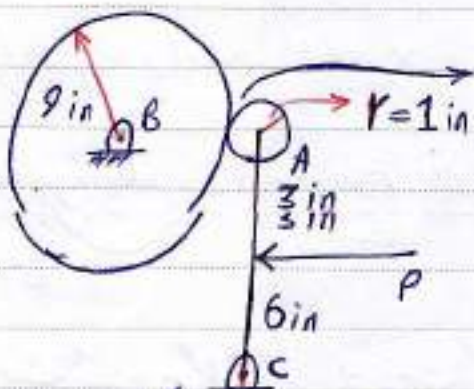 9 in
B
r = 1 in
A
3 in
3 in
P
6 in
C